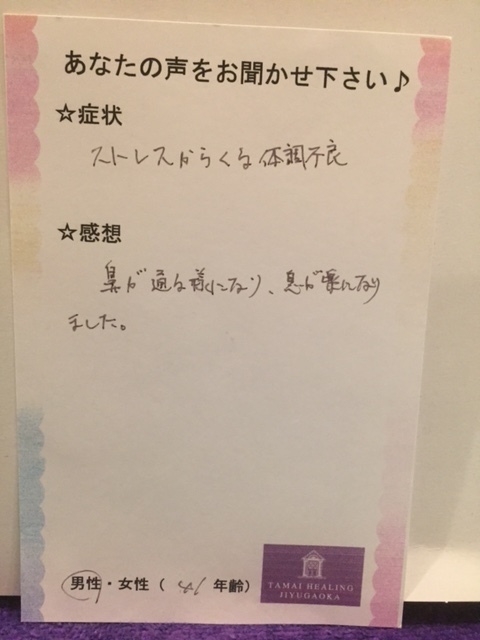 あなたの声をお聞かせ下さい♪
☆症状
ストレスからくる体調不良
☆感想
鼻が通る様になり、息が楽になり
ました。
男性・女性（ 41 年齢）
TAMAI HEALING
JIYUGAOKA